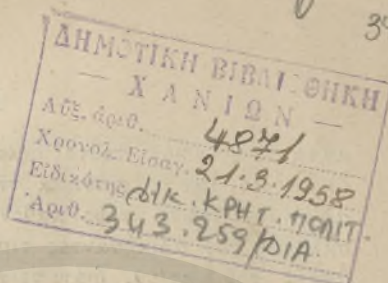 39
ΔΗΜΟΤΙΚΗ ΒΙΒΛΙΟΘΗΚΗ
— ΧΑΝΙΩΝ —
Αὔξ. ἀριθ. 4871
Χρονολ. Εἰσαγ. 21.3.1958
Εἰδικότης ΔΙΚ. ΚΡΗΤ. ΠΟΛΙΤ.
Ἀριθ. 343.959/ΔΙΑ